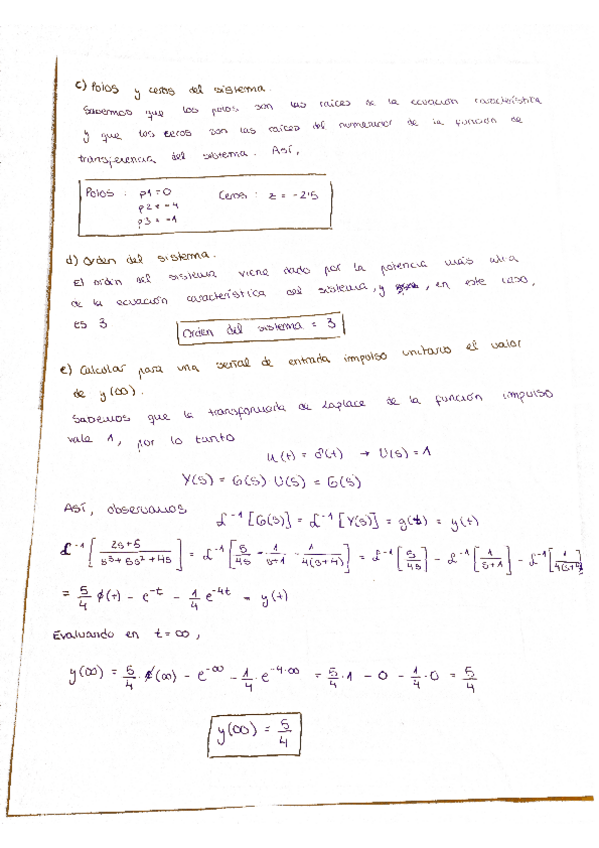 c) Polos y ceros del sistema.
Sabemos que los polos son las raíces de la ecuación característica
y que los ceros son las raíces del numerador de la función de
transferencia del sistema. Así,
Polos : p1 = 0 Ceros : z = -2'5
p2 = -4
p3 = -1
d) Orden del sistema.
El orden del sistema viene dado por la potencia más alta
de la ecuación característica del sistema, y , en este caso,
es 3 Orden del sistema = 3
e) Calcular para una señal de entrada impulso unitario el valor
de y(∞).
Sabemos que la transformada de Laplace de la función impulso
vale 1, por lo tanto
u(t) = δ(t) → U(s) = 1
Y(s) = G(s) · U(s) = G(s)
Así, observamos
L⁻¹[G(s)] = L⁻¹[Y(s)] = g(t) = y(t)
L⁻¹[(2s+5)/(s³+5s²+4s)] = L⁻¹[5/4s - 1/(s+1) - 1/(4(s+4))] = L⁻¹[5/4s] - L⁻¹[1/(s+1)] - L⁻¹[1/(4(s+4
= 5/4 (t) - e^-t - 1/4 e^-4t = y(t)
Evaluando en t = ∞,
y(∞) = 5/4 · (∞) - e^-∞ - 1/4 · e^-4·∞ = 5/4 · 1 - 0 - 1/4 · 0 = 5/4
y(∞) = 5/4